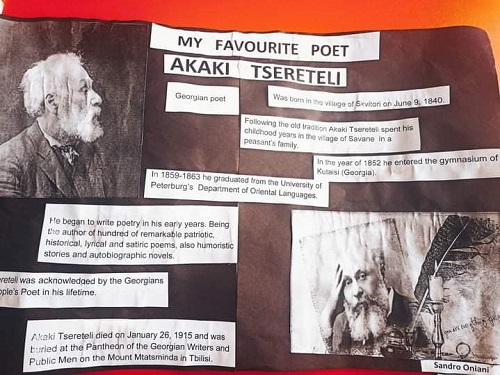 MY FAVOURITE POET
AKAKI TSERETELI
Georgian poet
Was born in the village of Skvitori on June 9, 1840.
Following the old tradition Akaki Tsereteli spent his
childhood years in the village of Savane in a
peasant's family.
In the year of 1852 he entered the gymnasium of
Kutaisi (Georgia).
In 1859-1863 he graduated from the University of
Peterburg's Department of Oriental Languages.
He began to write poetry in his early years. Being
the author of hundred of remarkable patriotic,
historical, lyrical and satiric poems, also humoristic
stories and autobiographic novels.
ereteli was acknowledged by the Georgians
ople's Poet in his lifetime.
Akaki Tsereteli died on January 26, 1915 and was
buried at the Pantheon of the Georgian Writers and
Public Men on the Mount Mtatsminda in Tbilisi.
Sandro Oniani